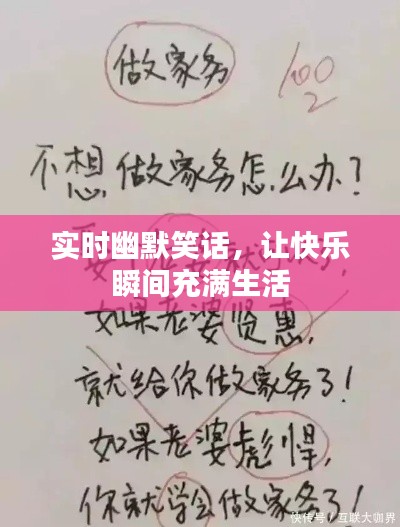 做家务
100
不想做家务怎么办？
实时幽默笑话，让快乐
瞬间充满生活
如果老婆贤惠，
就给你做家务了！
如果老婆彪悍，
你就学会做家务了！
快传号/互联大咖界